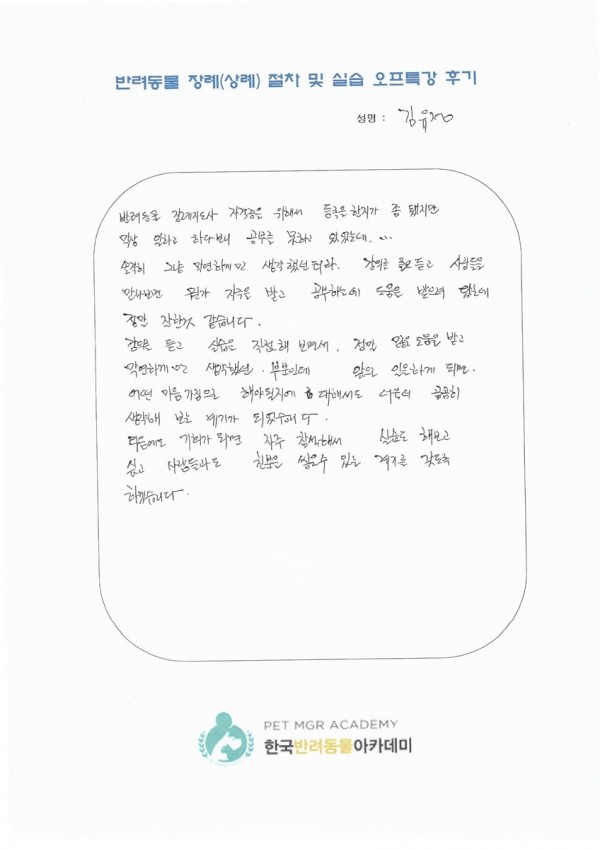 반려동물 장례(상례) 절차 및 실습 오프특강 후기
성명 : 김유
반려동물 장례지도사 자격증을 위해서 등록은 한지가 좀 됐지만
막상 일하고 하다보니 공부를 못하고 있었는데...
솔직히 그냥 막연하게만 생각했던터라. 강의를 듣고 사람들을
만나보면 뭔가 자극을 받고 공부하는데 도움을 받으려 했는데
정말 잘한것 같습니다.
강의를 듣고 실습을 직접해 보면서. 정말 많은 도움을 받고
막연하게만 생각했던. 부분인데 앞으로 일을하게 되면.
어떤 마음가짐으로 해야될지에 대해서도 더 곰곰히
생각해 보는 계기가 되었습니다.
다음에도 기회가 되면 자주 참석해서 실습도 해보고
싶고 사람들과도 친분을 쌓을수 있는 계기를 갖도록
하겠습니다.
PET MGR ACADEMY
한국반려동물아카데미